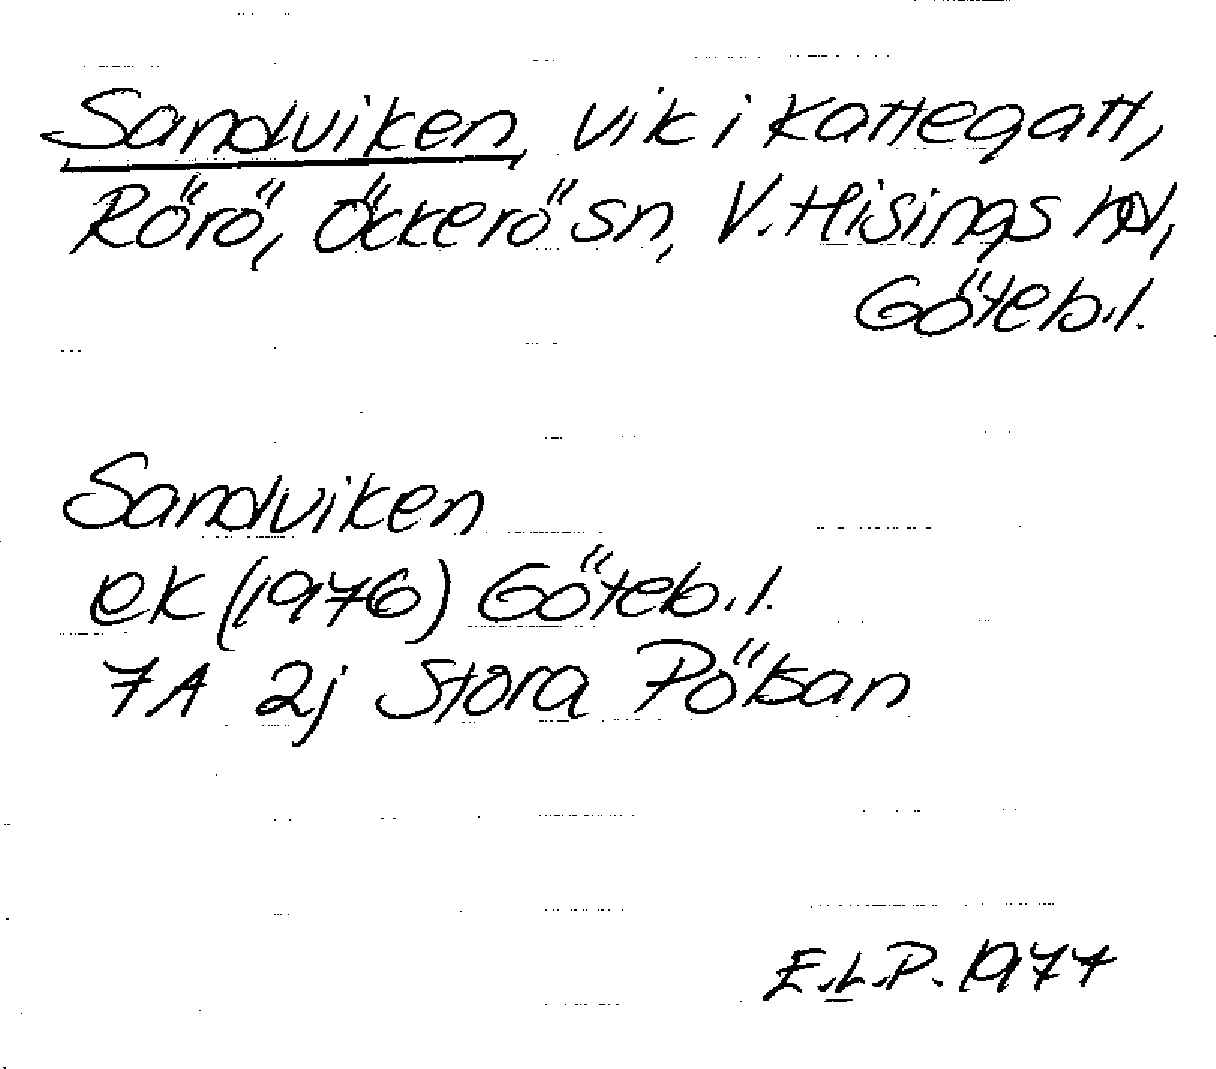 Sandviken, vik i Kattegatt,
Rörö, Öckerö sn, V. Hisings hd,
Göteb.l.
Sandviken
ek (1976) Göteb.l.
7A 2j Stora Pölsan
E.L.P. 1977